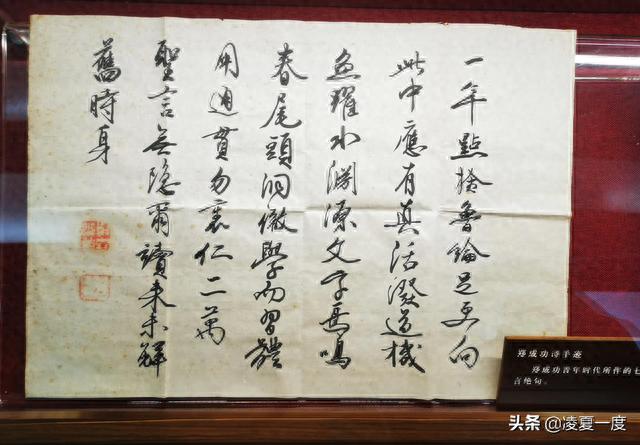 一年點檢魯論足更向
此中應有真活潑道機
魚躍水淵源文字鳥鳴
春尾頭洞徹學而習體
用通貫勿裏仁二萬
聖言無隱爾讀來未解
舊時身
郑成功诗手迹
郑成功青年时代所作的七
言绝句。
头条 @凌夏一度